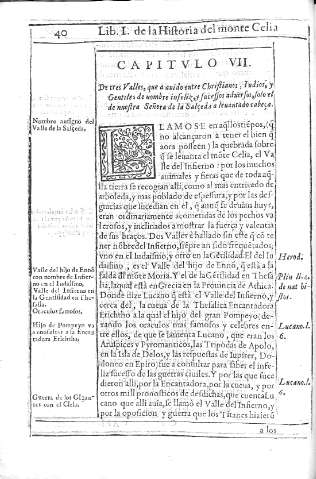 40
Lib. I. de la Historia del monte Celia
CAPITVLO VII.
De tres Valles, que a auido entre Christianos, Iudios, y
Gentiles de nombre infeliz, y sucessos aduersos, solo el
de nuestra Señora de la Salçeda a leuantado cabeça.
Nombre antiguo del
Valle de la Salçeda.
LLAMOSE en aq̃llos tiẽpos, (q̃
no alcançaron a tener el bien q̃
aora posseen) la quebrada sobre
q̃ se leuanta el mõte Celia, el Va
lle del Infierno: por los muchos
animales y fieras que de toda aq̃
lla tierra se recogian alli, como al mas cultiuado de
arboleda, y mas poblado de espesura, y por las des
gracias que sucedian en el, q̃
eran ordinariamente acometidas de los pechos va
lerosos, y inclinados a mostrar la fuerça y valentia
de sus braços. Dos Valles è hallado sin este q̃
del Infierno,
vno en el Iudaismo, y otro en la Gẽtilidad. El del Iu
daismo, es el Valle del hijo de Ennõ, q̃ està a la
falda del monte Moria. Y el de la Gentilidad en Thesa
lia, la qual està en Grecia en la Prouincia de Athica.
Donde dize Lucano q̃ està el Valle del Infierno, y
cerca del, la cueua de la Thesalica Encantadora
Erichtho a la qual el hijo del gran Pompeyo, de
xando los oraculos mas famosos y celebres en
tre ellos, de que se lamenta Lucano, que eran los
Aruspices y Pyromanticos, las Tripodas de Apolo,
en la Isla de Delos, y las respuestas de Iupiter, Do
doneo en Epiro, fue a consultar para saber el infe
liz sucesso de las guerras ciuiles. Y por las que suce
dieron alli, por la Encantadora, por la cueua, y por
otros mill pronosticos de desdichas, que cuenta Lu
cano que alli auia, se llamò el Valle del Infierno, y
por la oposicion y guerra que los Titanes hizierõ
a los
Valle del hijo de Ennõ
con nombre de Infier-
no en el Iudaismo.
Valle del Infierno en
la Gentilidad en The-
salia.
Oraculos famosos.
Hijo de Pompeyo va
a consultar a la Encan
tadora Erichtho.
Guerra de los Gigan-
tes con el Cielo.
Herod.
de nat
Lucano. l.
6.
Lucano. l.
6.